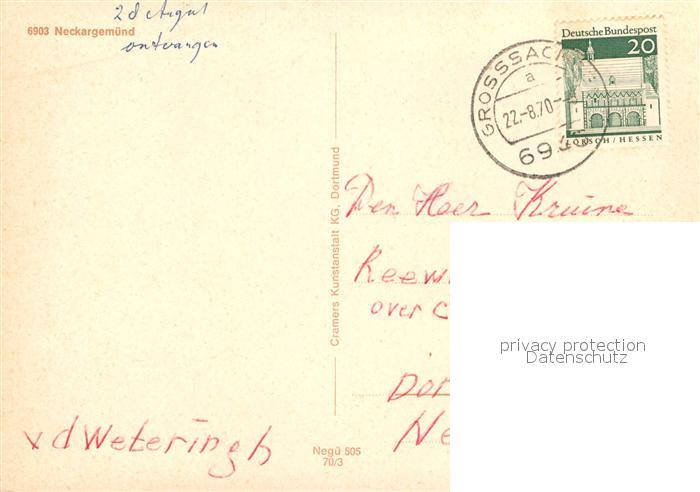 6903 Neckargemünd
28 Augut
ontvangen
Deutsche Bundespost
20
LORSCH / HESSEN
GROSSSACH
a
22.-8.70-
Cramers Kunstanstalt KG, Dortmund
Den Heer Kruine
Reew
over
Dor
Ne
privacy protection
Datenschutz
v d Weteringh
Negü 505
70/3